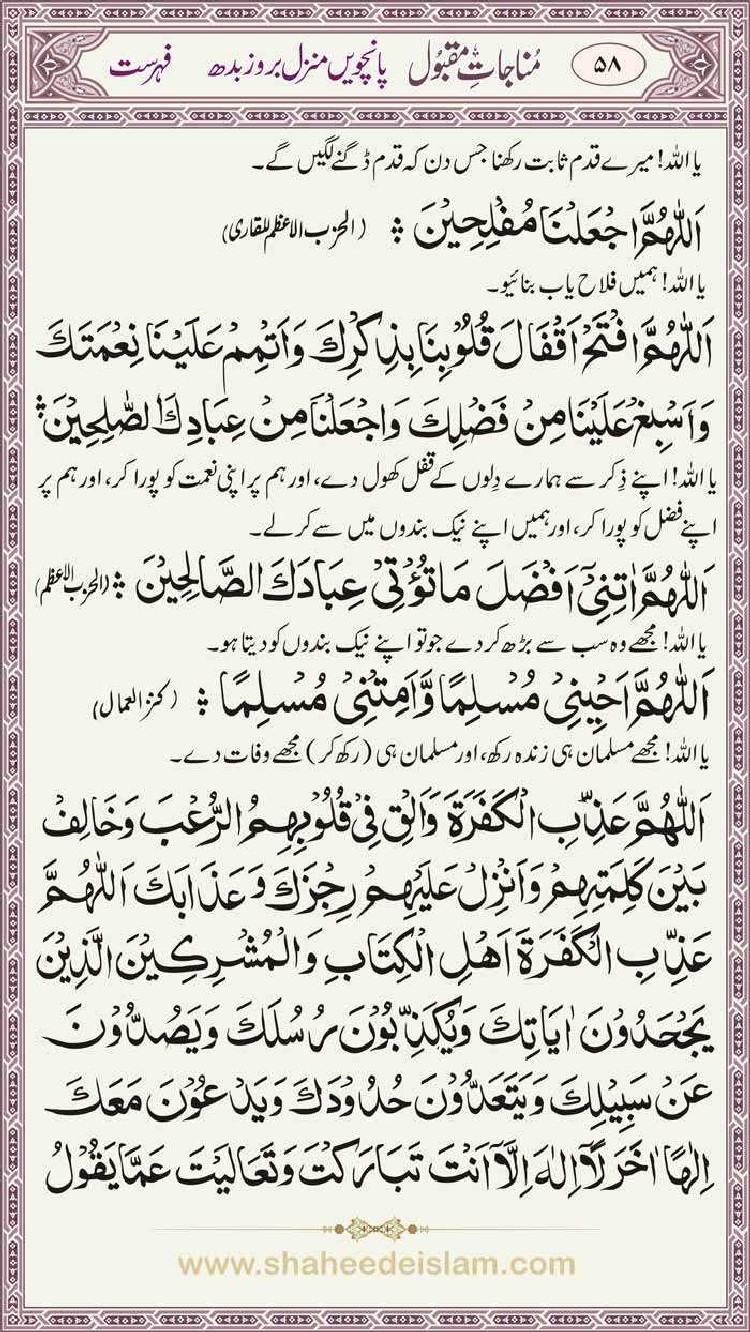 ۵۸ مُناجاتِ مقبُول پانچویں منزل بروز بدھ فہرست
یا اللہ! میرے قدم ثابت رکھنا جس دن کہ قدم ڈگنے لگیں گے۔
اَللّٰهُمَّ اجْعَلْنَا مُفْلِحِيْنَ ؞ (الحزب الاعظم للقاری)
یا اللہ! ہمیں فلاح یاب بنائیو۔
اَللّٰهُمَّ افْتَحْ اَقْفَالَ قُلُوْبِنَا بِذِكْرِكَ وَاَتْمِمْ عَلَيْنَا نِعْمَتَكَ
وَاَسْبِغْ عَلَيْنَا مِنْ فَضْلِكَ وَاجْعَلْنَا مِنْ عِبَادِكَ الصّٰلِحِيْنَ ؞
یا اللہ! اپنے ذِکر سے ہمارے دِلوں کے قفل کھول دے، اور ہم پر اپنی نعمت کو پورا کر، اور ہم پر
اپنے فضل کو پورا کر، اور ہمیں اپنے نیک بندوں میں سے کر لے۔
اَللّٰهُمَّ اٰتِنِيْٓ اَفْضَلَ مَا تُؤْتِيْ عِبَادَكَ الصَّالِحِيْنَ ؞ (الحزب الاعظم)
یا اللہ! مجھے وہ سب سے بڑھ کر دے جو تو اپنے نیک بندوں کو دیتا ہو۔
اَللّٰهُمَّ اَحْيِنِيْ مُسْلِمًا وَّاَمِتْنِيْ مُسْلِمًا ؞ (کنز العمال)
یا اللہ! مجھے مسلمان ہی زندہ رکھ، اور مسلمان ہی (رکھ کر) مجھے وفات دے۔
اَللّٰهُمَّ عَذِّبِ الْكَفَرَةَ وَاَلْقِ فِيْ قُلُوْبِهِمُ الرُّعْبَ وَخَالِفْ
بَيْنَ كَلِمَتِهِمْ وَاَنْزِلْ عَلَيْهِمْ رِجْزَكَ وَعَذَابَكَ اَللّٰهُمَّ
عَذِّبِ الْكَفَرَةَ اَهْلِ الْكِتَابِ وَالْمُشْرِكِيْنَ الَّذِيْنَ
يَجْحَدُوْنَ اٰيَاتِكَ وَيُكَذِّبُوْنَ رُسُلَكَ وَيَصُدُّوْنَ
عَنْ سَبِيْلِكَ وَيَتَعَدُّوْنَ حُدُوْدَكَ وَيَدْعُوْنَ مَعَكَ
اِلٰهًا اٰخَرَ لَآ اِلٰهَ اِلَّآ اَنْتَ تَبَارَكْتَ وَتَعَالَيْتَ عَمَّا يَقُوْلُ
www.shaheedeislam.com